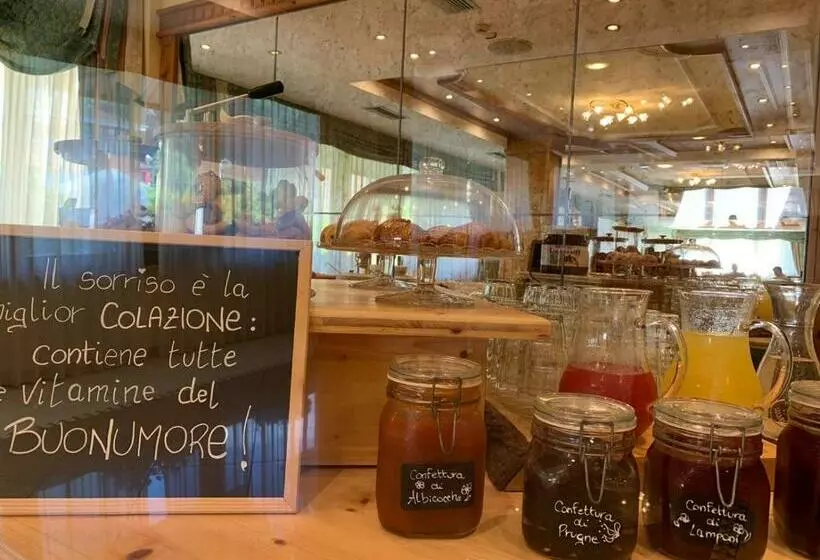 Il sorriso è la
miglior COLAZIONE:
contiene tutte
le vitamine del
BUONUMORE!
Confettura
di
Albicocche
Confettura
di
Prugne
Confettura
di
Lamponi